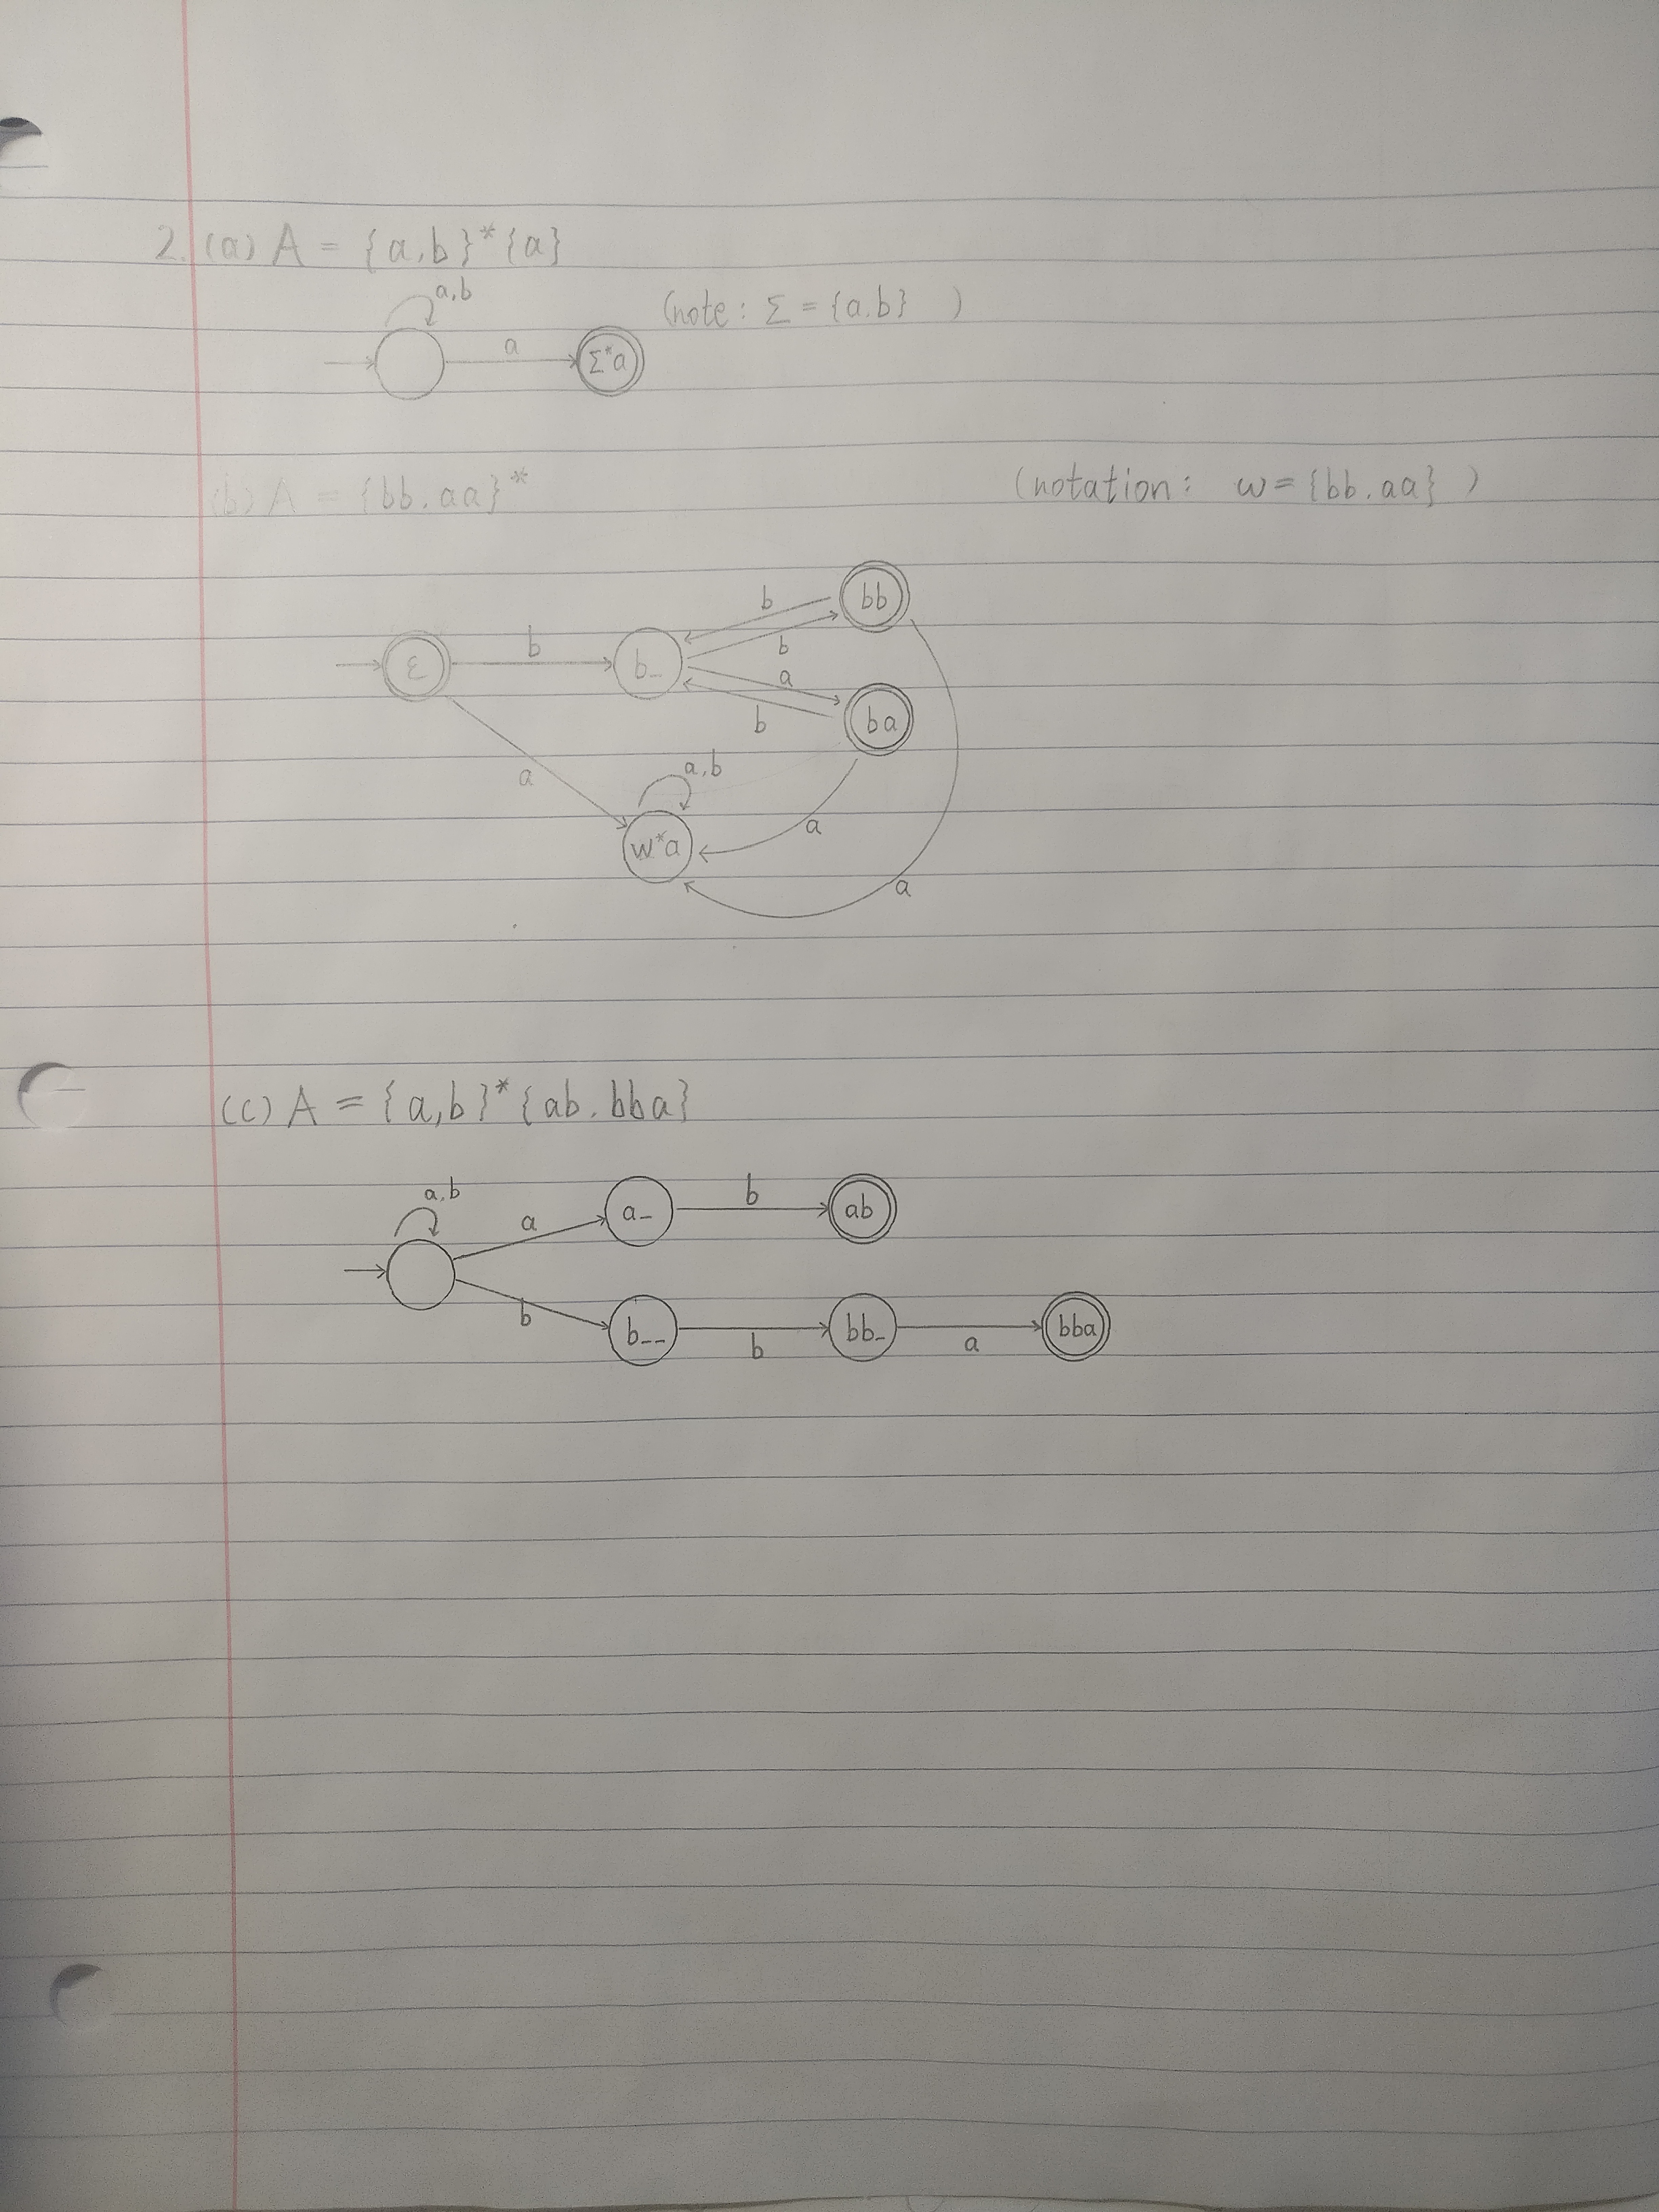 2. (a) A = {a,b}*{a}
a,b
(note: Σ = {a.b} )
a
Σ*a
(b) A = {bb.aa}*
(notation: w = {bb.aa} )
b
bb
b
b
ε
b_
a
b
ba
a
a,b
a
w*a
a
(c) A = {a,b}*{ab.bba}
a,b
a
a_
b
ab
b
b__
b
bb_
a
bba